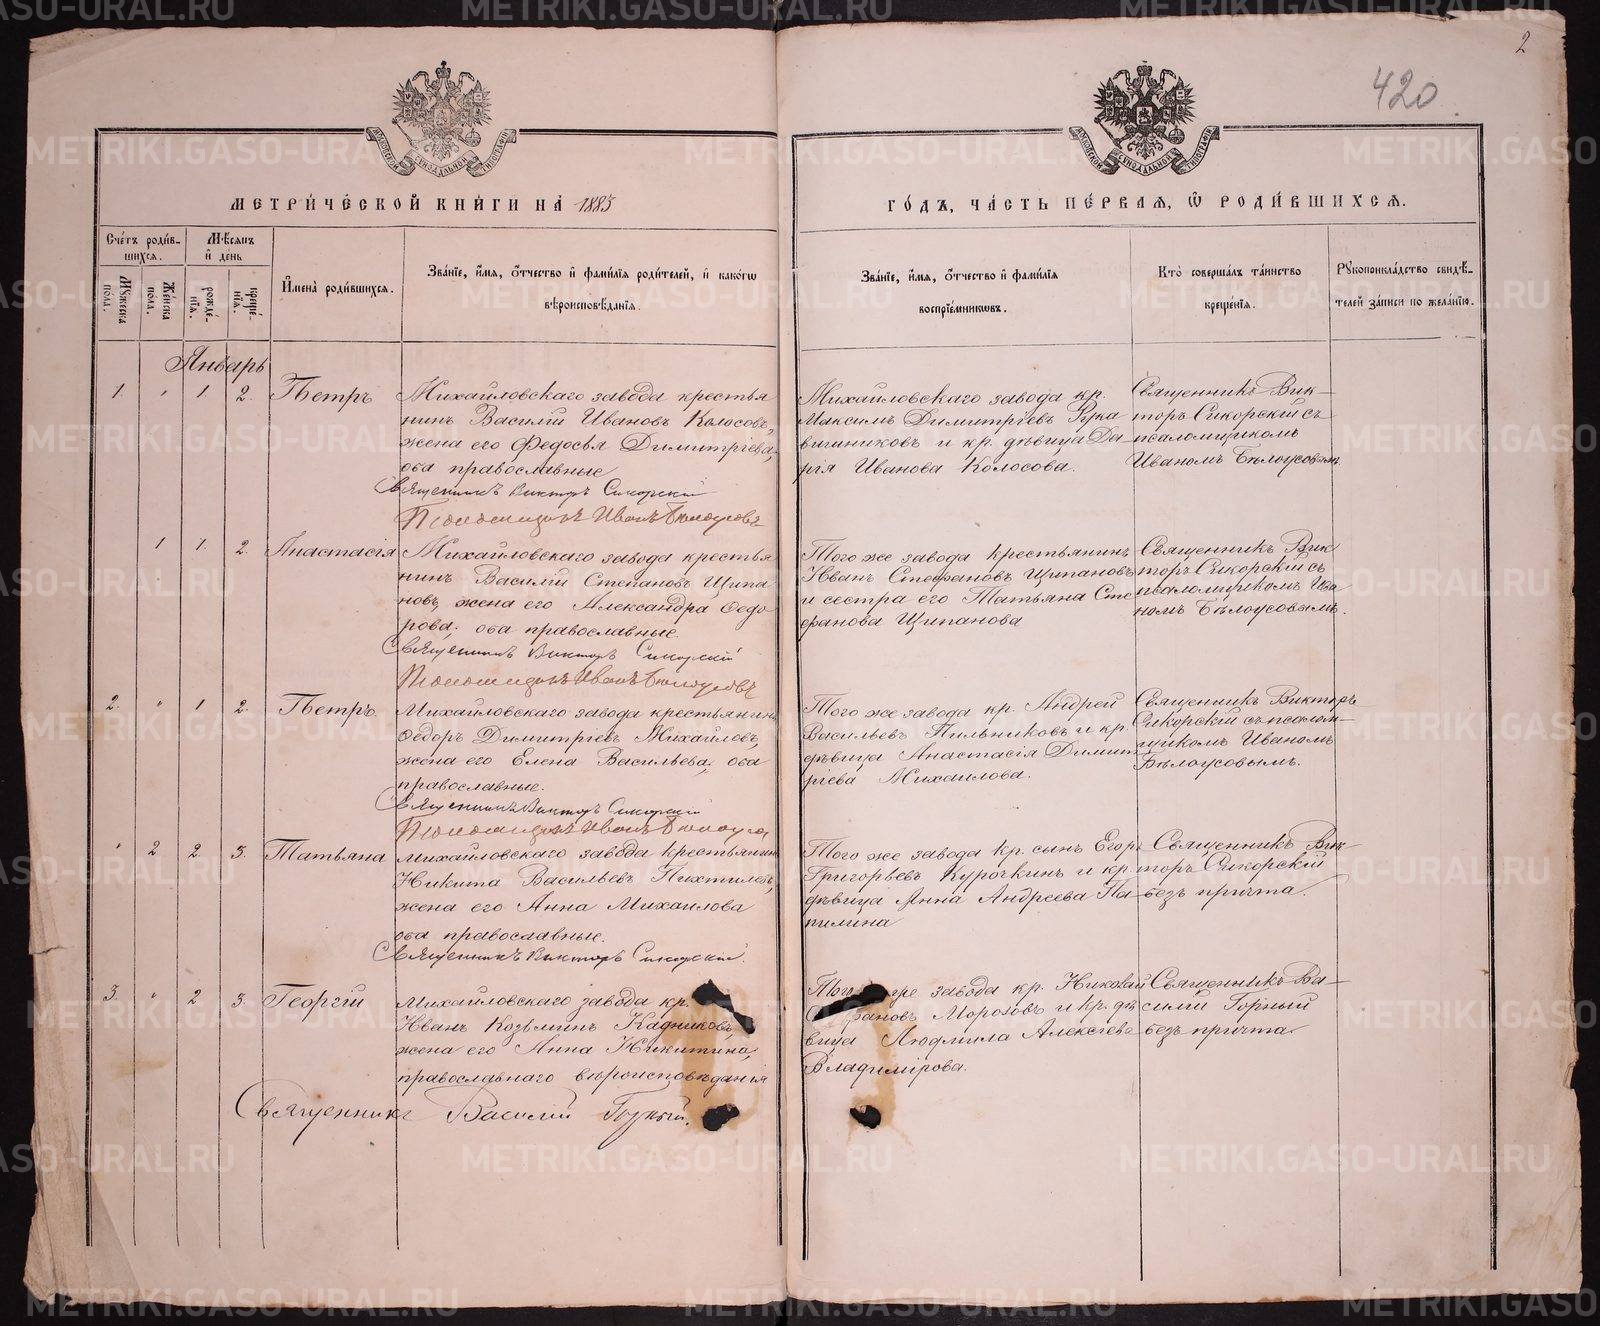 2
420
МОСКОВСКОЙ СѴНОДАЛЬНОЙ ТИПОГРАФІИ
МОСКОВСКОЙ СѴНОДАЛЬНОЙ ТИПОГРАФІИ
МЕТРИ́ЧЕСКОЙ КНИ́ГИ НА̀ 1885
ГО́ДЪ, ЧА́СТЬ ПЕ́РВАЯ, Ѡ РОДИ́ВШИХСЯ.
Сче́тъ роди́в-
шихся.
Мѣсяцъ
и̂ де́нь
Мꙋжеска
пола.
Же́нска
пола.
рожде́-
нія.
креще́-
нія.
И҆мена̀ роди́вшихся.
Зва́нїе, и҆́мя, ѻ҆́тчество и҆ фами́лїя роди́телей, и҆ како́гѡ
вѣроисповѣ́данїя.
Зва́нїе, и҆́мя, ѻ҆́тчество и҆ фами́лїя
воспрїе́мникѡвъ.
Кто̀ соверша́лъ та́инство
креще́нїя.
Рꙋкоприкла́дство свидѣ́-
телей за́писи по жела́нїю.
Январь
1. " 1 2. Петръ
Михайловскаго завода крестья
нинъ Василій Ивановъ Колосовъ,
жена его Федосья Димитріева,
оба православные
Священникъ Викторъ Сикорскій
Псаломщикъ Иванъ Бѣлоусовъ
Михайловскаго завода кр.
Максимъ Димитріевъ Рука
вишниковъ и кр. дѣвица Да-
рія Иванова Колосова.
Священникъ Вик-
торъ Сикорскій съ
псаломщикомъ
Иваномъ Бѣлоусовымъ
1 1. 2. Анастасія
Михайловскаго завода крестья
нинъ Василій Степановъ Щипа
новъ, жена его Александра Ѳедо
рова; оба православные.
Священникъ Викторъ Сикорскій
Псаломщикъ Иванъ Бѣлоусовъ
Того же завода крестьянинъ
Иванъ Стефановъ Щипановъ
и сестра его Татьяна Сте
фанова Щипанова
Священникъ Вик
торъ Сикорскій съ
псаломщикомъ Ива
номъ Бѣлоусовымъ.
2. " 1 2. Петръ
Михайловскаго завода крестьянинъ
Ѳедоръ Димитріевъ Михайловъ,
жена его Елена Васильева; оба
православные.
Священникъ Викторъ Сикорскій
Псаломщикъ Иванъ Бѣлоусовъ
Того же завода кр. Андрей
Васильевъ Пильниковъ и кр.
дѣвица Анастасія Димит
ріева Михаилова.
Священникъ Викторъ
Сикорскій съ псалом-
щикомъ Иваномъ
Бѣлоусовымъ.
" 2 2. 3. Татьяна
Михайловскаго завода крестьянинъ
Никита Васильевъ
жена его Анна Михаилова
оба православные.
Священникъ Викторъ Сикорскій.
Того же завода кр. сынъ Егоръ
Григорьевъ Курочкинъ и кр.
дѣвица Анна Андреева Па-
пилина
Священникъ Вик
торъ Сикорскій
безъ причта.
3. " 2 3. Георгій
Михайловскаго завода кр.
Иванъ Козьминъ Кадниковъ,
жена его Анна Никитина,
православнаго вѣроисповѣданія
Священникъ Василій Горный.
Того же завода кр. Николай
фановъ Морозовъ и кр. дѣ
вица Людмила Алексѣева
Владимірова.
Священникъ Ва-
силій Горный
безъ причта